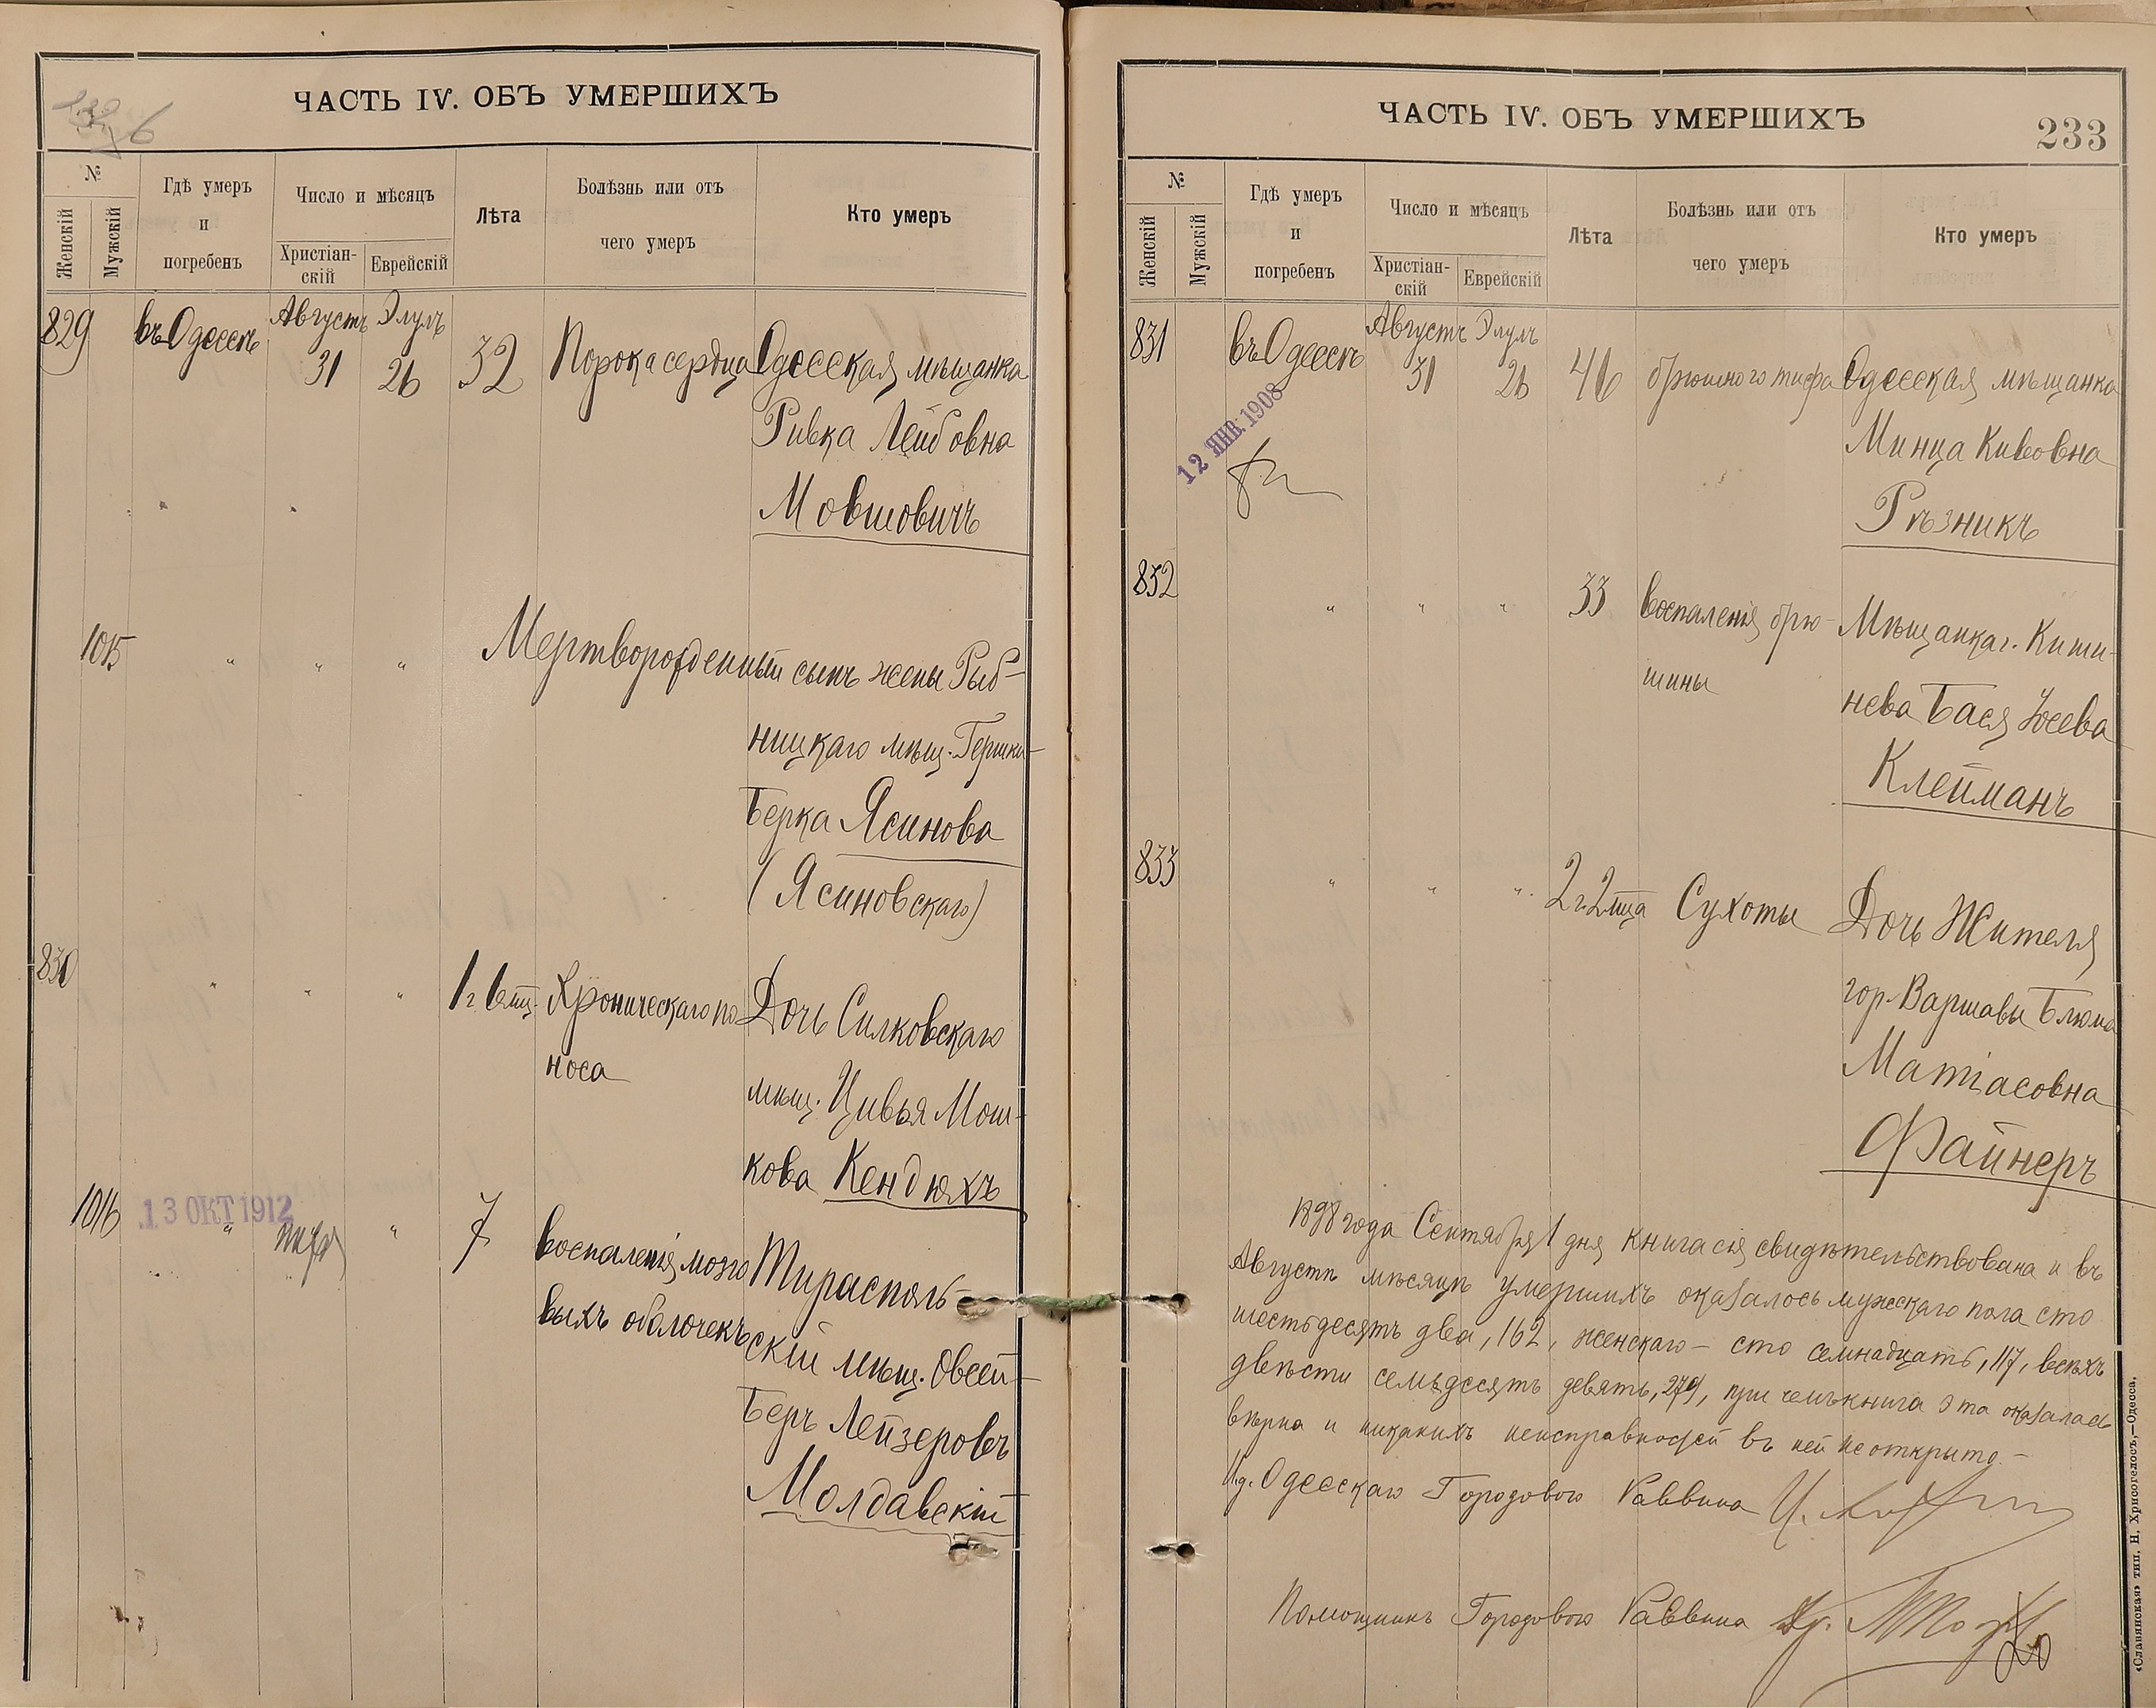 ЧАСТЬ IV. ОБЪ УМЕРШИХЪ
№
Женскій
Мужскій
Гдѣ умеръ
и
погребенъ
Число и мѣсяцъ
Христіан-
скій
Еврейскій
Лѣта
Болѣзнь или отъ
чего умеръ
Кто умеръ
829 въ Одессѣ Августъ 31 Элулъ 26 32 Порока сердца Одесская мѣщанка
Ривка Лейбовна
Мовшовичъ
1015 " " " Мертворожденный сынъ жены Рыб-
ницкаго мѣщ. Гершки-
Берка Ясинова
(Ясиновскаго)
830 " " " 1 г. 6 мц. Хроническаго по Дочь Силковскаго
носа
мѣщ. Цивья Мош-
кова Кендюхъ
1016 13 ОКТ 1912 " " 7 Воспаленія мозго Тирасполь-
выхъ оболочекъ скій мѣщ. Овсей-
Беръ Лейзеровъ
Молдавскій
ЧАСТЬ IV. ОБЪ УМЕРШИХЪ
233
№
Женскій
Мужскій
Гдѣ умеръ
и
погребенъ
Число и мѣсяцъ
Христіан-
скій
Еврейскій
Лѣта
Болѣзнь или отъ
чего умеръ
Кто умеръ
831 въ Одессѣ Августъ 31 Элулъ 26 46 брюшного тифа Одесская мѣщанка
12 ЯНВ. 1908
Минца Кивовна
Рѣзникъ
832 " " " 33 Воспаленія брю- Мѣщанка г. Киши-
шины
нева Бася Юсева
Клейманъ
833 " " " 2 г. 2 мца Сухоты Дочь Жителя
гор. Варшавы Блюма
Матіасовна
Файнеръ
1898 года Сентября 1 дня книга сія свидѣтельствована и въ
Августѣ мѣсяцѣ умершихъ оказалось мужескаго пола сто
шестьдесятъ два, 162, женскаго - сто семнадцать, 117, всѣхъ
двѣсти семьдесятъ девять, 279, при чемъ книга эта оказалась
вѣрна и никакихъ неисправностей въ ней не открыто. -
И.д. Одесскаго Городового Раввина
Помощникъ Городового Раввина
«Славянская» тип. Н. Хрисогелосъ,—Одесса,